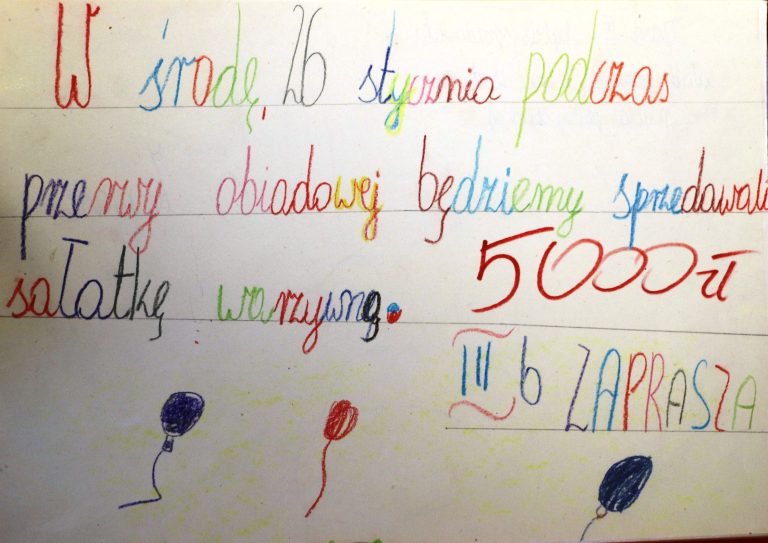 W środę 26 stycznia podczas
przerwy obiadowej będziemy sprzedawali
sałatkę warzywną.
5000 zł
III b ZAPRASZA